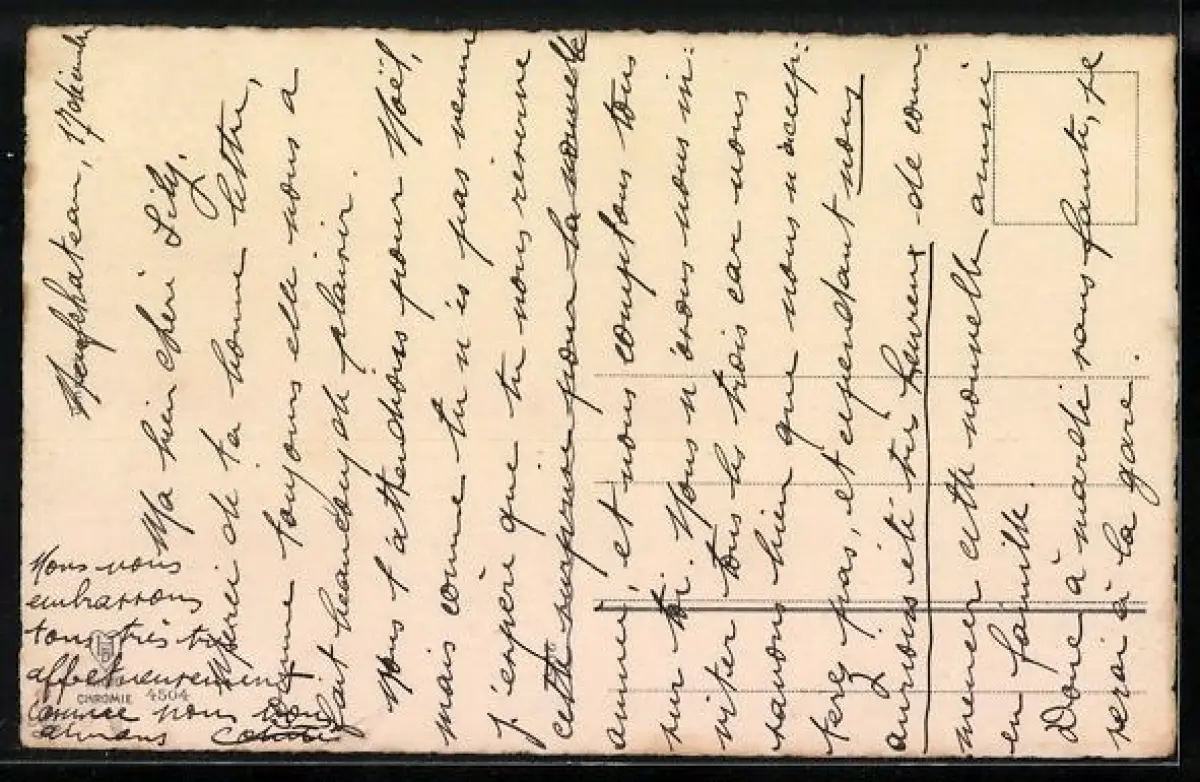 Neufchateau, 17
Ma bien chéri Lily,
Merci de ta bonne lettre,
comme toujours elle nous a
fait beaucoup de plaisir.
Nous t'attendions pour Noël,
mais comme tu n'es pas venue
j'espère que tu nous réserve
cette surprise pour la nouvelle
année, et nous comptons tous
sur toi. Nous n'osons nous in-
viter tous les trois car nous
savons bien que vous n'accep-
terez pas, et cependant nous
aurions été très heureux de com-
mencer cette nouvelle année
en famille.
Donc à mardi sans faute, je
serai à la gare.
Nous vous
embrassons
tous très
affectueusement
comme nous vous
aimons
CHROMIE 4504